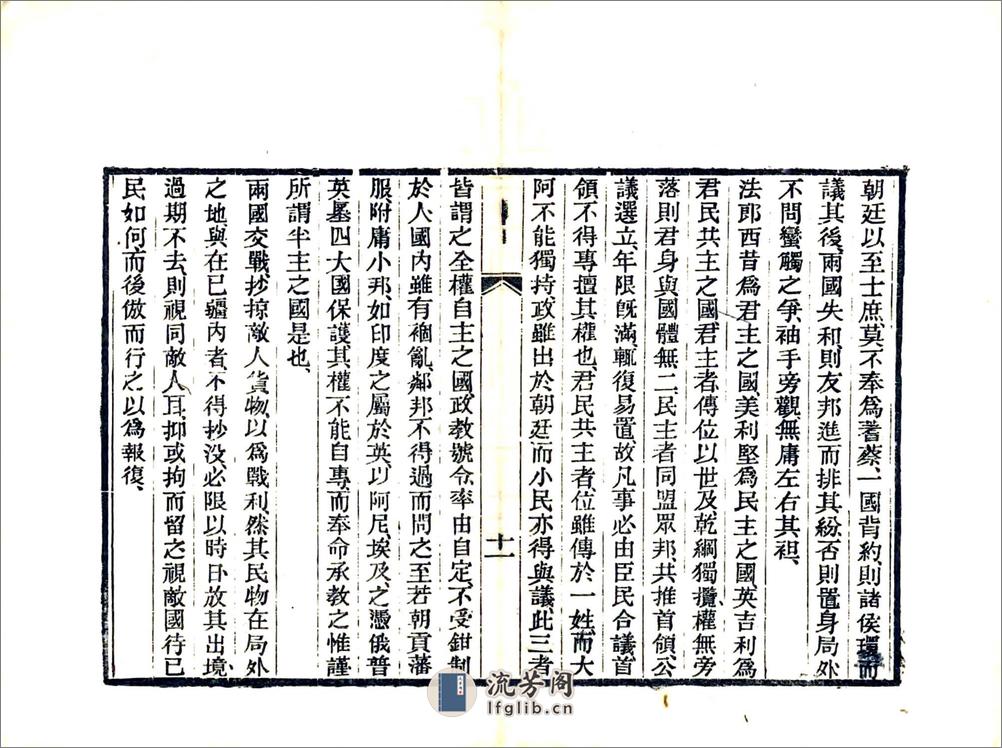 朝廷以至士庶、莫不奉爲蓍蔡、一國背約、則諸侯環而
議其後、兩國失利、則友邦進而排其紛、否則置身局外
不問蠻觸之爭、袖手旁觀、無庸左右其袒、
法郎西昔爲君主之國、美利堅爲民主之國、英吉利爲
君民共主之國、君主者、傳位以世及、乾綱獨攬、權無旁
落、則君身與國體無二、民主者、同盟眾邦、共推首領、公
議選立、年限旣滿、輒復易置、故凡事必由臣民合議、首
領不得專擅其權也、君民共主者、位雖傳於一姓、而大
阿不能獨持、政雖出於朝廷、而小民亦得與議、此三者
十一
皆謂之全權自主之國、政教號令、率由自定、不受鉗制
於人、國內雖有禍亂、鄰邦不得過而問之、至若朝貢藩
服、附庸小邦、如印度之屬於英、以阿尼、埃及、之憑俄普
英墨四大國保護、其權不能自專、而奉命承教之惟謹
所謂半主之國是也、
兩國交戰、抄掠敵人貨物、以爲戰利、然其民物在局外
之地、與在已疆內者、不得抄没、必限以時日、放其出境
過期不去、則視同敵人耳、抑或拘而留之、視敵國待已
民如何、而後倣而行之、以爲報復、
流芳阁
lfglib.cn